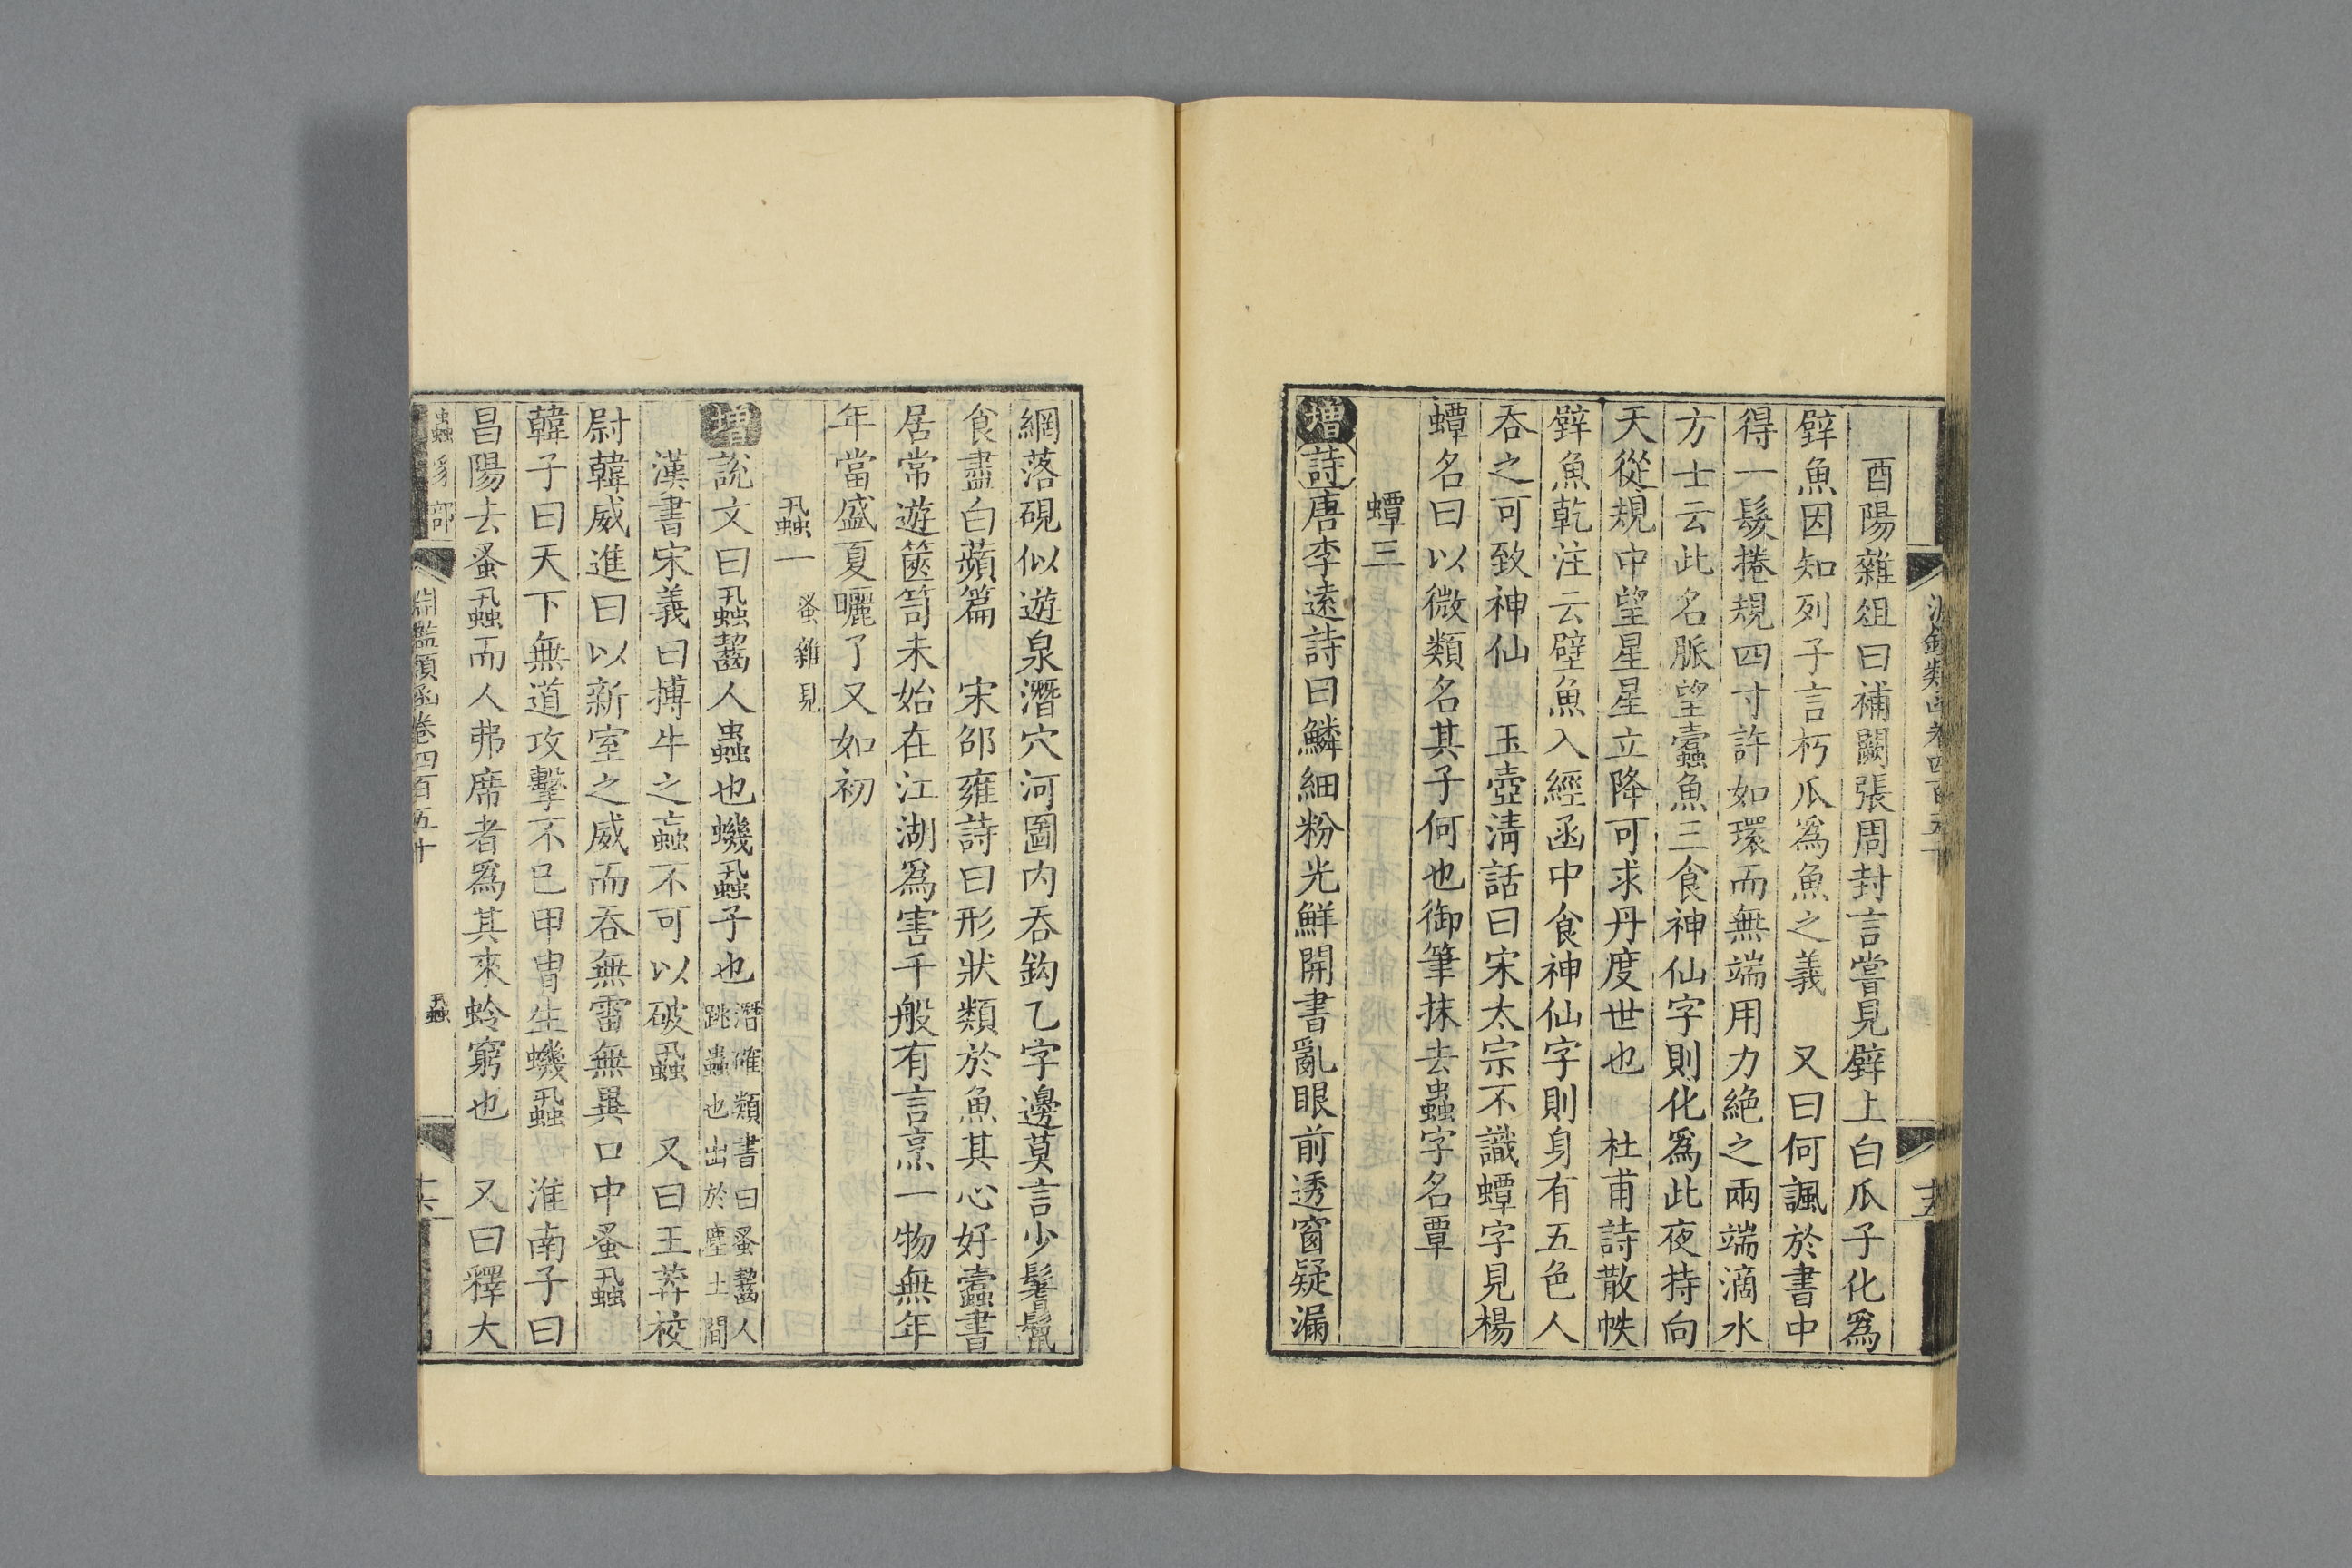 淵鑑類函卷四百五十
十五
酉陽雜俎曰補闕張周封言嘗見壁上白瓜子化爲
壁魚因知列子言朽瓜爲魚之義　又曰何諷於書中
得一髮捲規四寸許如環而無端用力絶之兩端滴水
方士云此名脈望蠹魚三食神仙字則化爲此夜持向
天從規中望星星立降可求丹度世也　杜甫詩散帙
壁魚乾注云壁魚入經函中食神仙字則身有五色人
吞之可致神仙　玉壺清話曰宋太宗不識蟫字見楊
蟫名曰以微類名其子何也御筆抹去蟲字名覃
蟫三
增詩唐李遠詩曰鱗細粉光鮮開書亂眼前透窗疑漏
網落硯似遊泉潛穴河圖内吞鈎乙字邊莫言少鬐鬣
食盡白蘋篇　宋邵雍詩曰形狀類於魚其心好蠹書
居常遊篋笥未始在江湖爲害千般有言烹一物無年
年當盛夏曬了又如初
蝨一蚤雜見
增說文曰蝨齧人蟲也蟣蝨子也潛確類書曰蚤齧人跳蟲也出於塵土間
漢書宋義曰搏牛之蝱不可以破蝨　又曰王莽校
尉韓威進曰以新室之威而吞無雷無異口中蚤蝨
韓子曰天下無道攻擊不已甲冑生蟣蝨　淮南子曰
昌陽去蚤蝨而人弗席者爲其來蛉窮也　又曰釋大
蟲豸部
淵鑑類函卷四百五十
蝨
十六